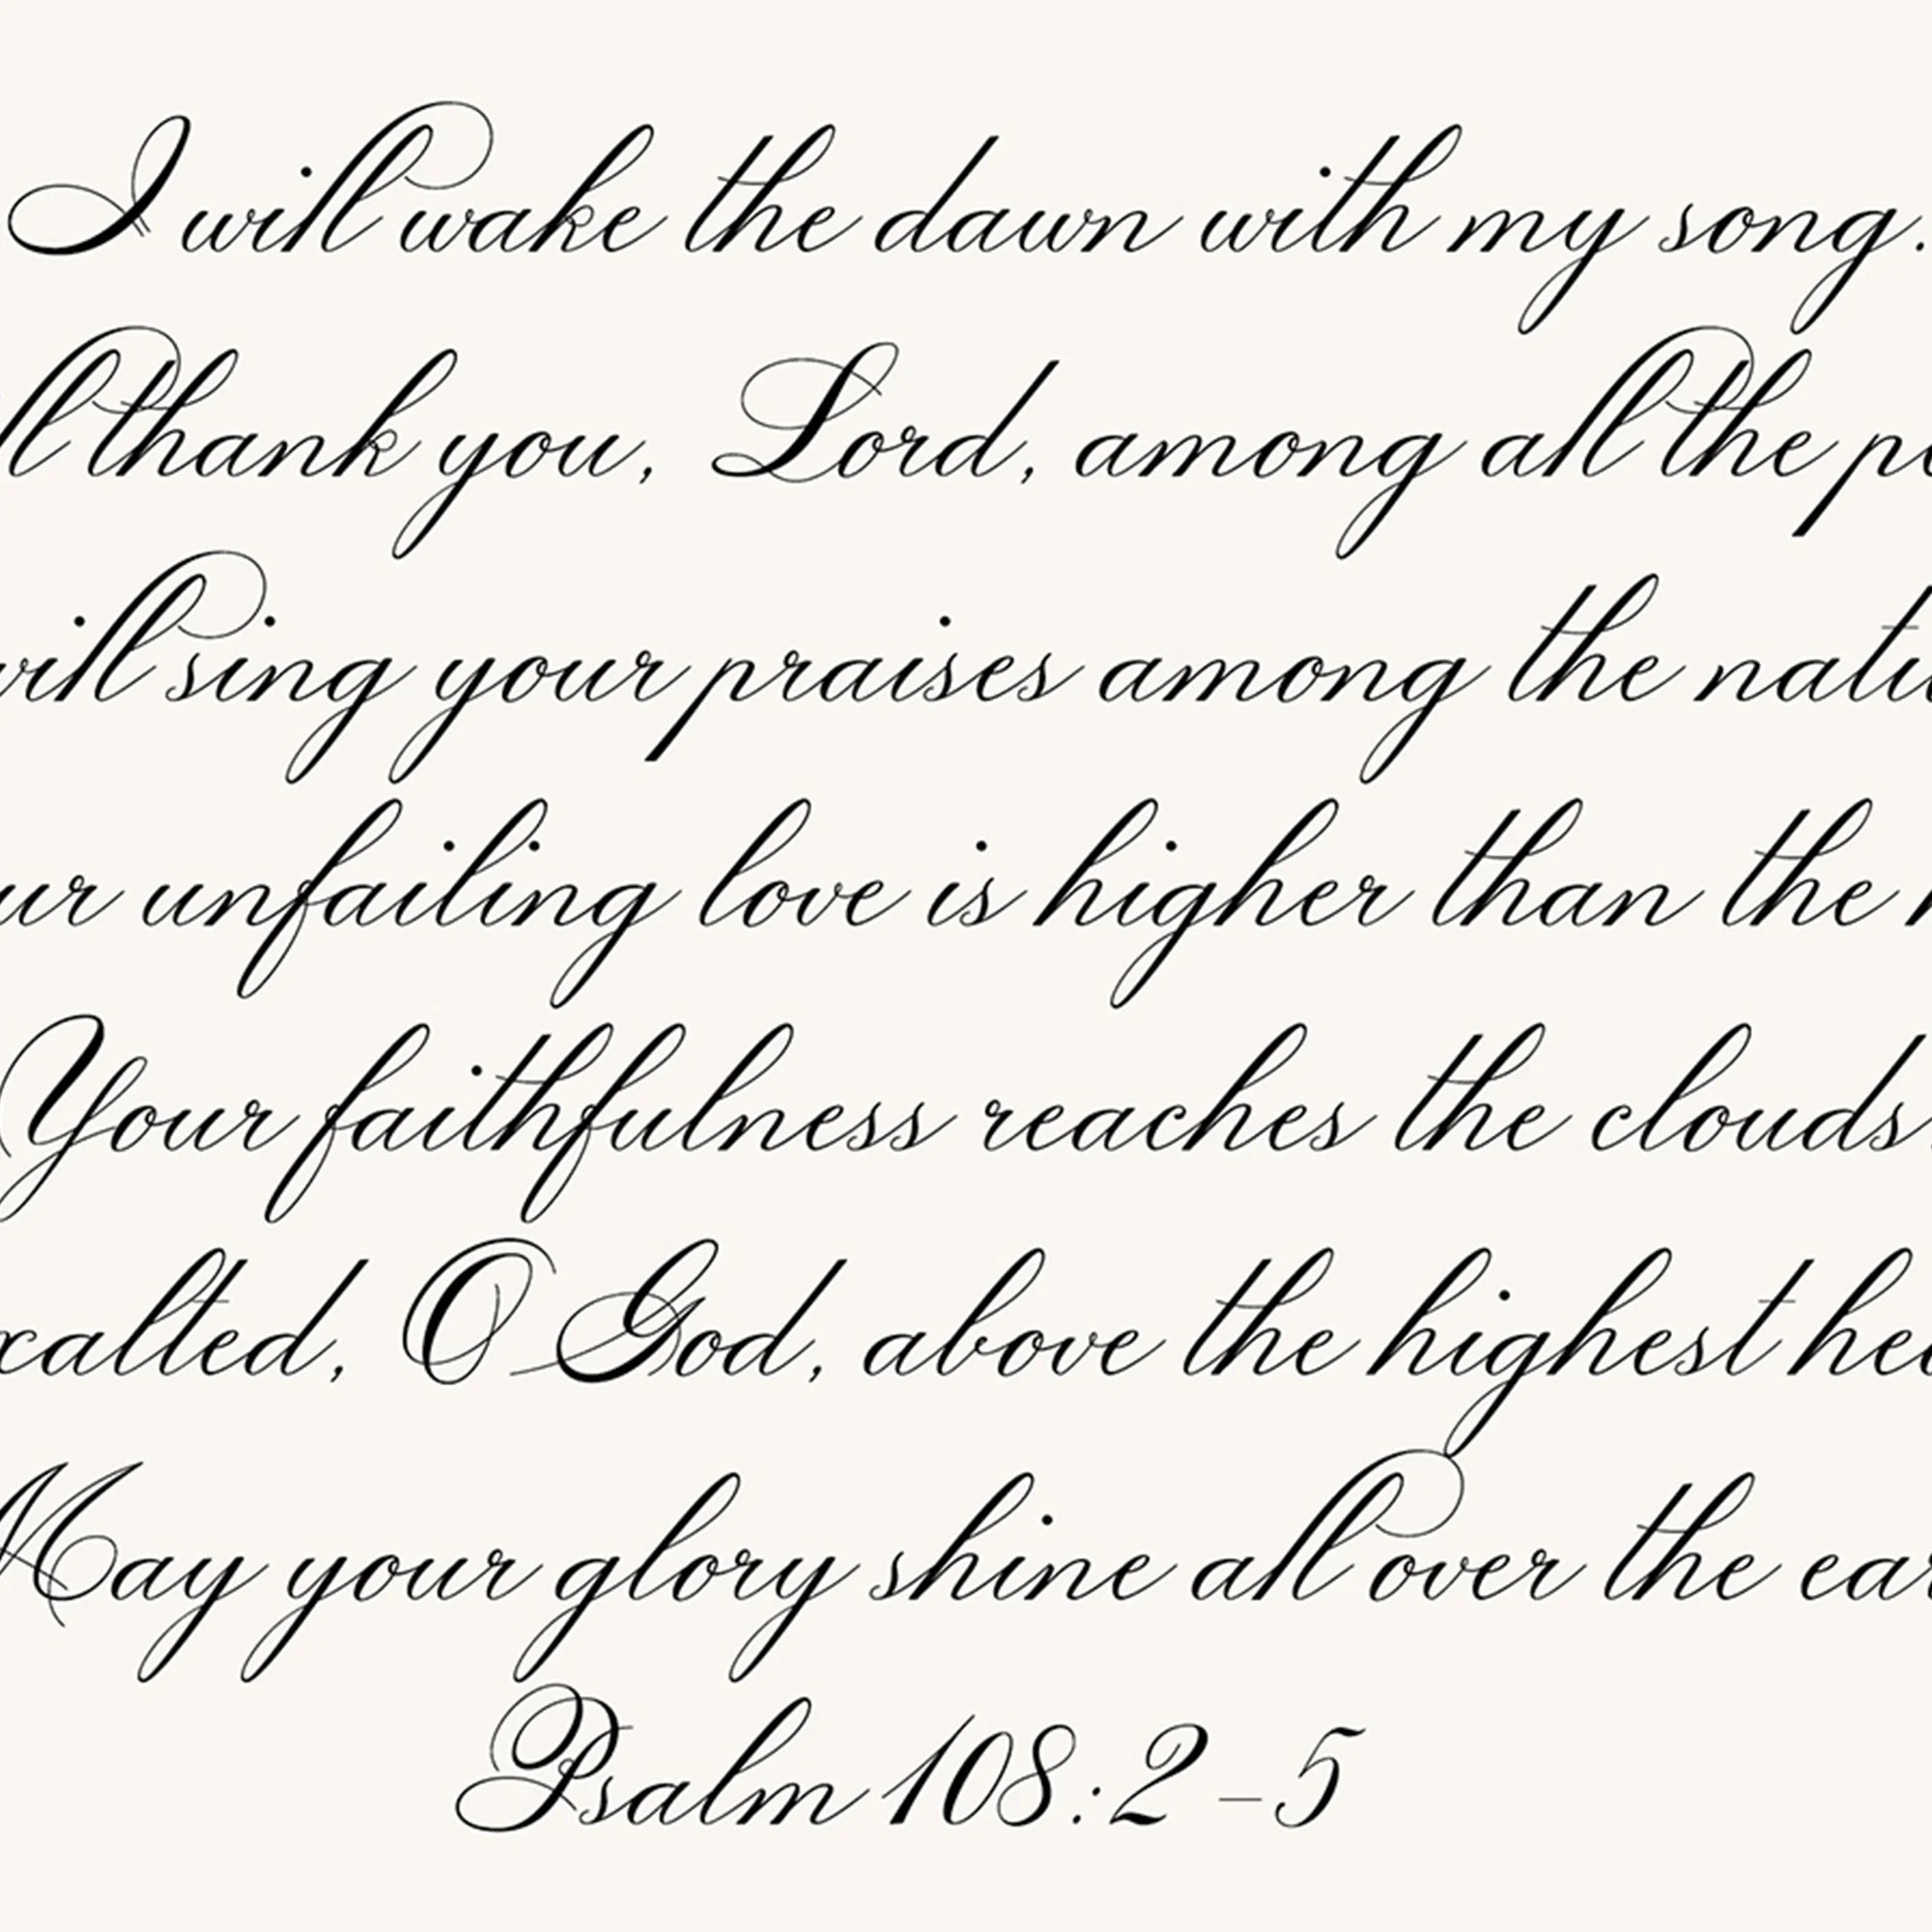 I will wake the dawn with my song.
thank you, Lord, among all the
sing your praises among the
unfailing love is higher than the
Your faithfulness reaches the clouds.
O God, above the highest
May your glory shine all over the
Psalm 108:2-5